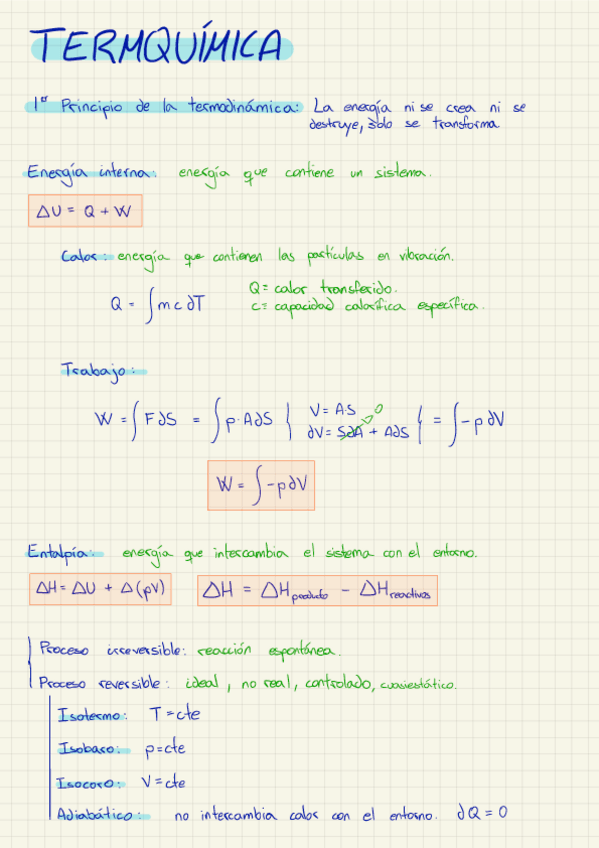 TERMQUÍMICA
1er Principio de la termodinámica: La energía ni se crea ni se
destruye, sólo se transforma
Energía interna: energía que contiene un sistema.
ΔU = Q + W
Calor: energía que contienen las partículas en vibración.
Q = ∫ m c ∂T
Q = calor transferido.
c = capacidad calorífica específica.
Trabajo:
W = ∫ F ∂S = ∫ p · A ∂S { V = A·S
∂V = S∂A → 0 + A∂S { = ∫ -p ∂V
W = ∫ -p ∂V
Entalpía: energía que intercambia el sistema con el entorno.
ΔH = ΔU + Δ(pV) ΔH = ΔH producto - ΔH reactivos
Proceso irreversible: reacción espontánea.
Proceso reversible: ideal, no real, controlado, cuasiestático.
Isotermo: T = cte
Isobaro: p = cte
Isocoro: V = cte
Adiabático: no intercambia calor con el entorno. ∂Q = 0